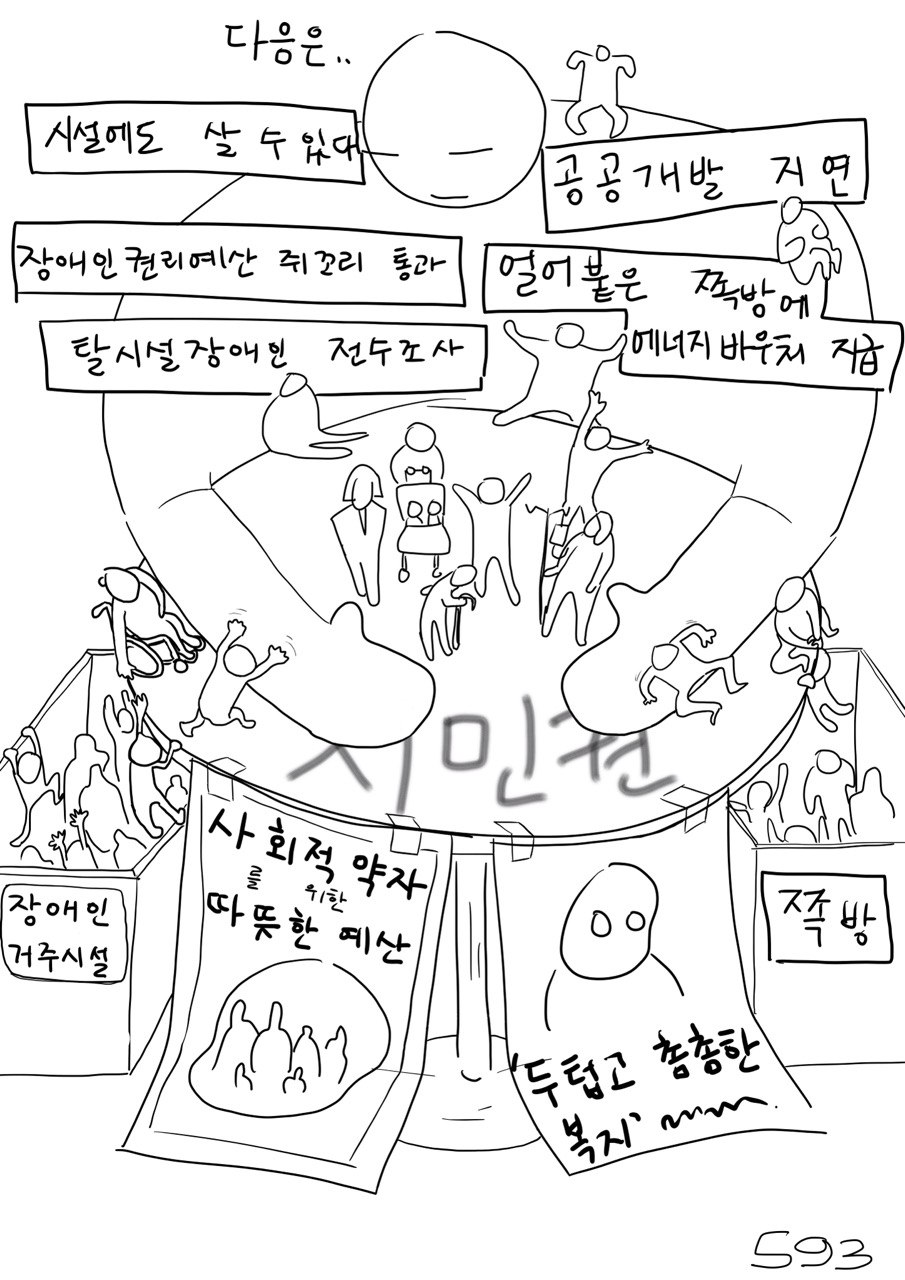 다음은..
시설에도 살 수 있다
공공개발 지연
장애인권리예산 쥐꼬리 통과
얼어붙은 쪽방에
에너지바우처 지급
탈시설장애인 전수조사
시민권
사회적 약자
를 위한
따뜻한 예산
장애인
거주시설
쪽방
'두텁고 촘촘한
복지'
593